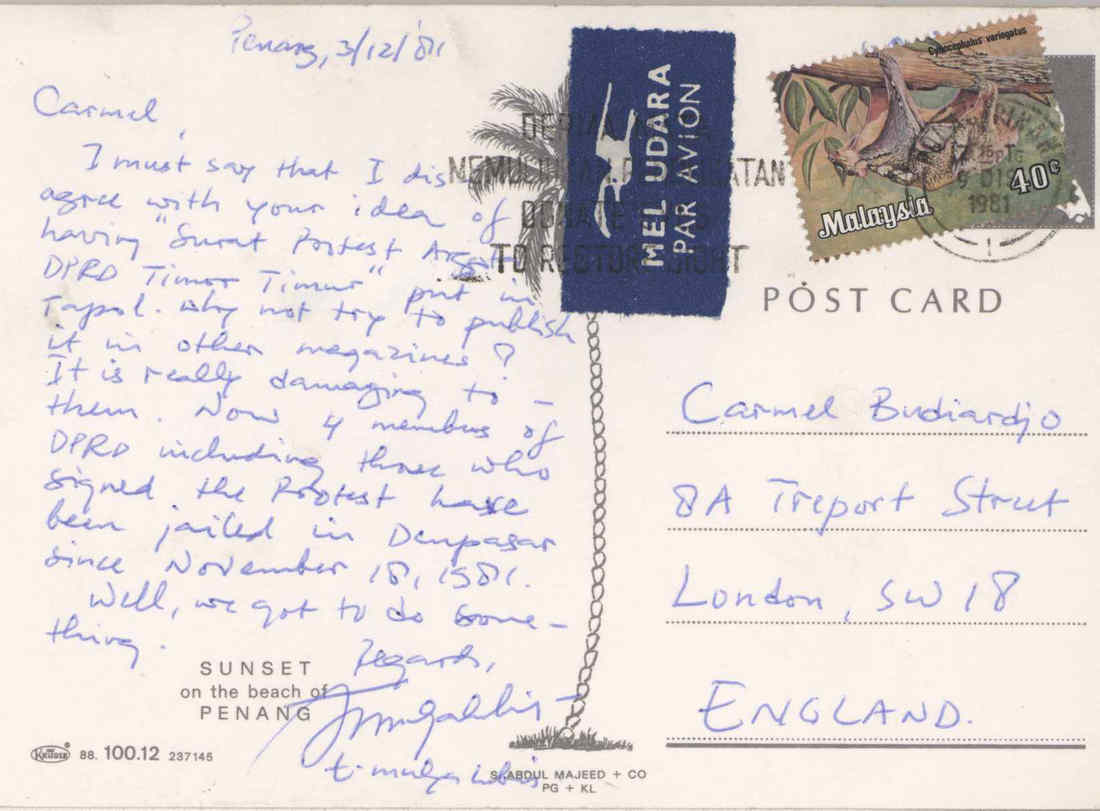 Penang, 3/12/'81
Carmel,
I must say that I dis
agree with your idea of
having "Surat Protest Anggota
DPRD Timor Timur" put in
Tapol. Why not try to publish
it in other megazines?
It is really damaging to
them. Now 4 members of
DPRD including those who
signed the Protest have
been jailed in Denpasar
since November 18, 1981.
Well, we got to do some-
thing.
Regards,
t. mulya lubis
SUNSET
on the beach of
PENANG
KRÜGER 88. 100.12 237145
S. ABDUL MAJEED + CO
PG + KL
MEL UDARA
PAR AVION
DERMA
DONATE
TO RESTORE SIGHT
Cynocephalus variegatus
40c
Malaysia
9 DIS
1981
POST CARD
Carmel Budiardjo
8A Treport Street
London, SW 18
ENGLAND.